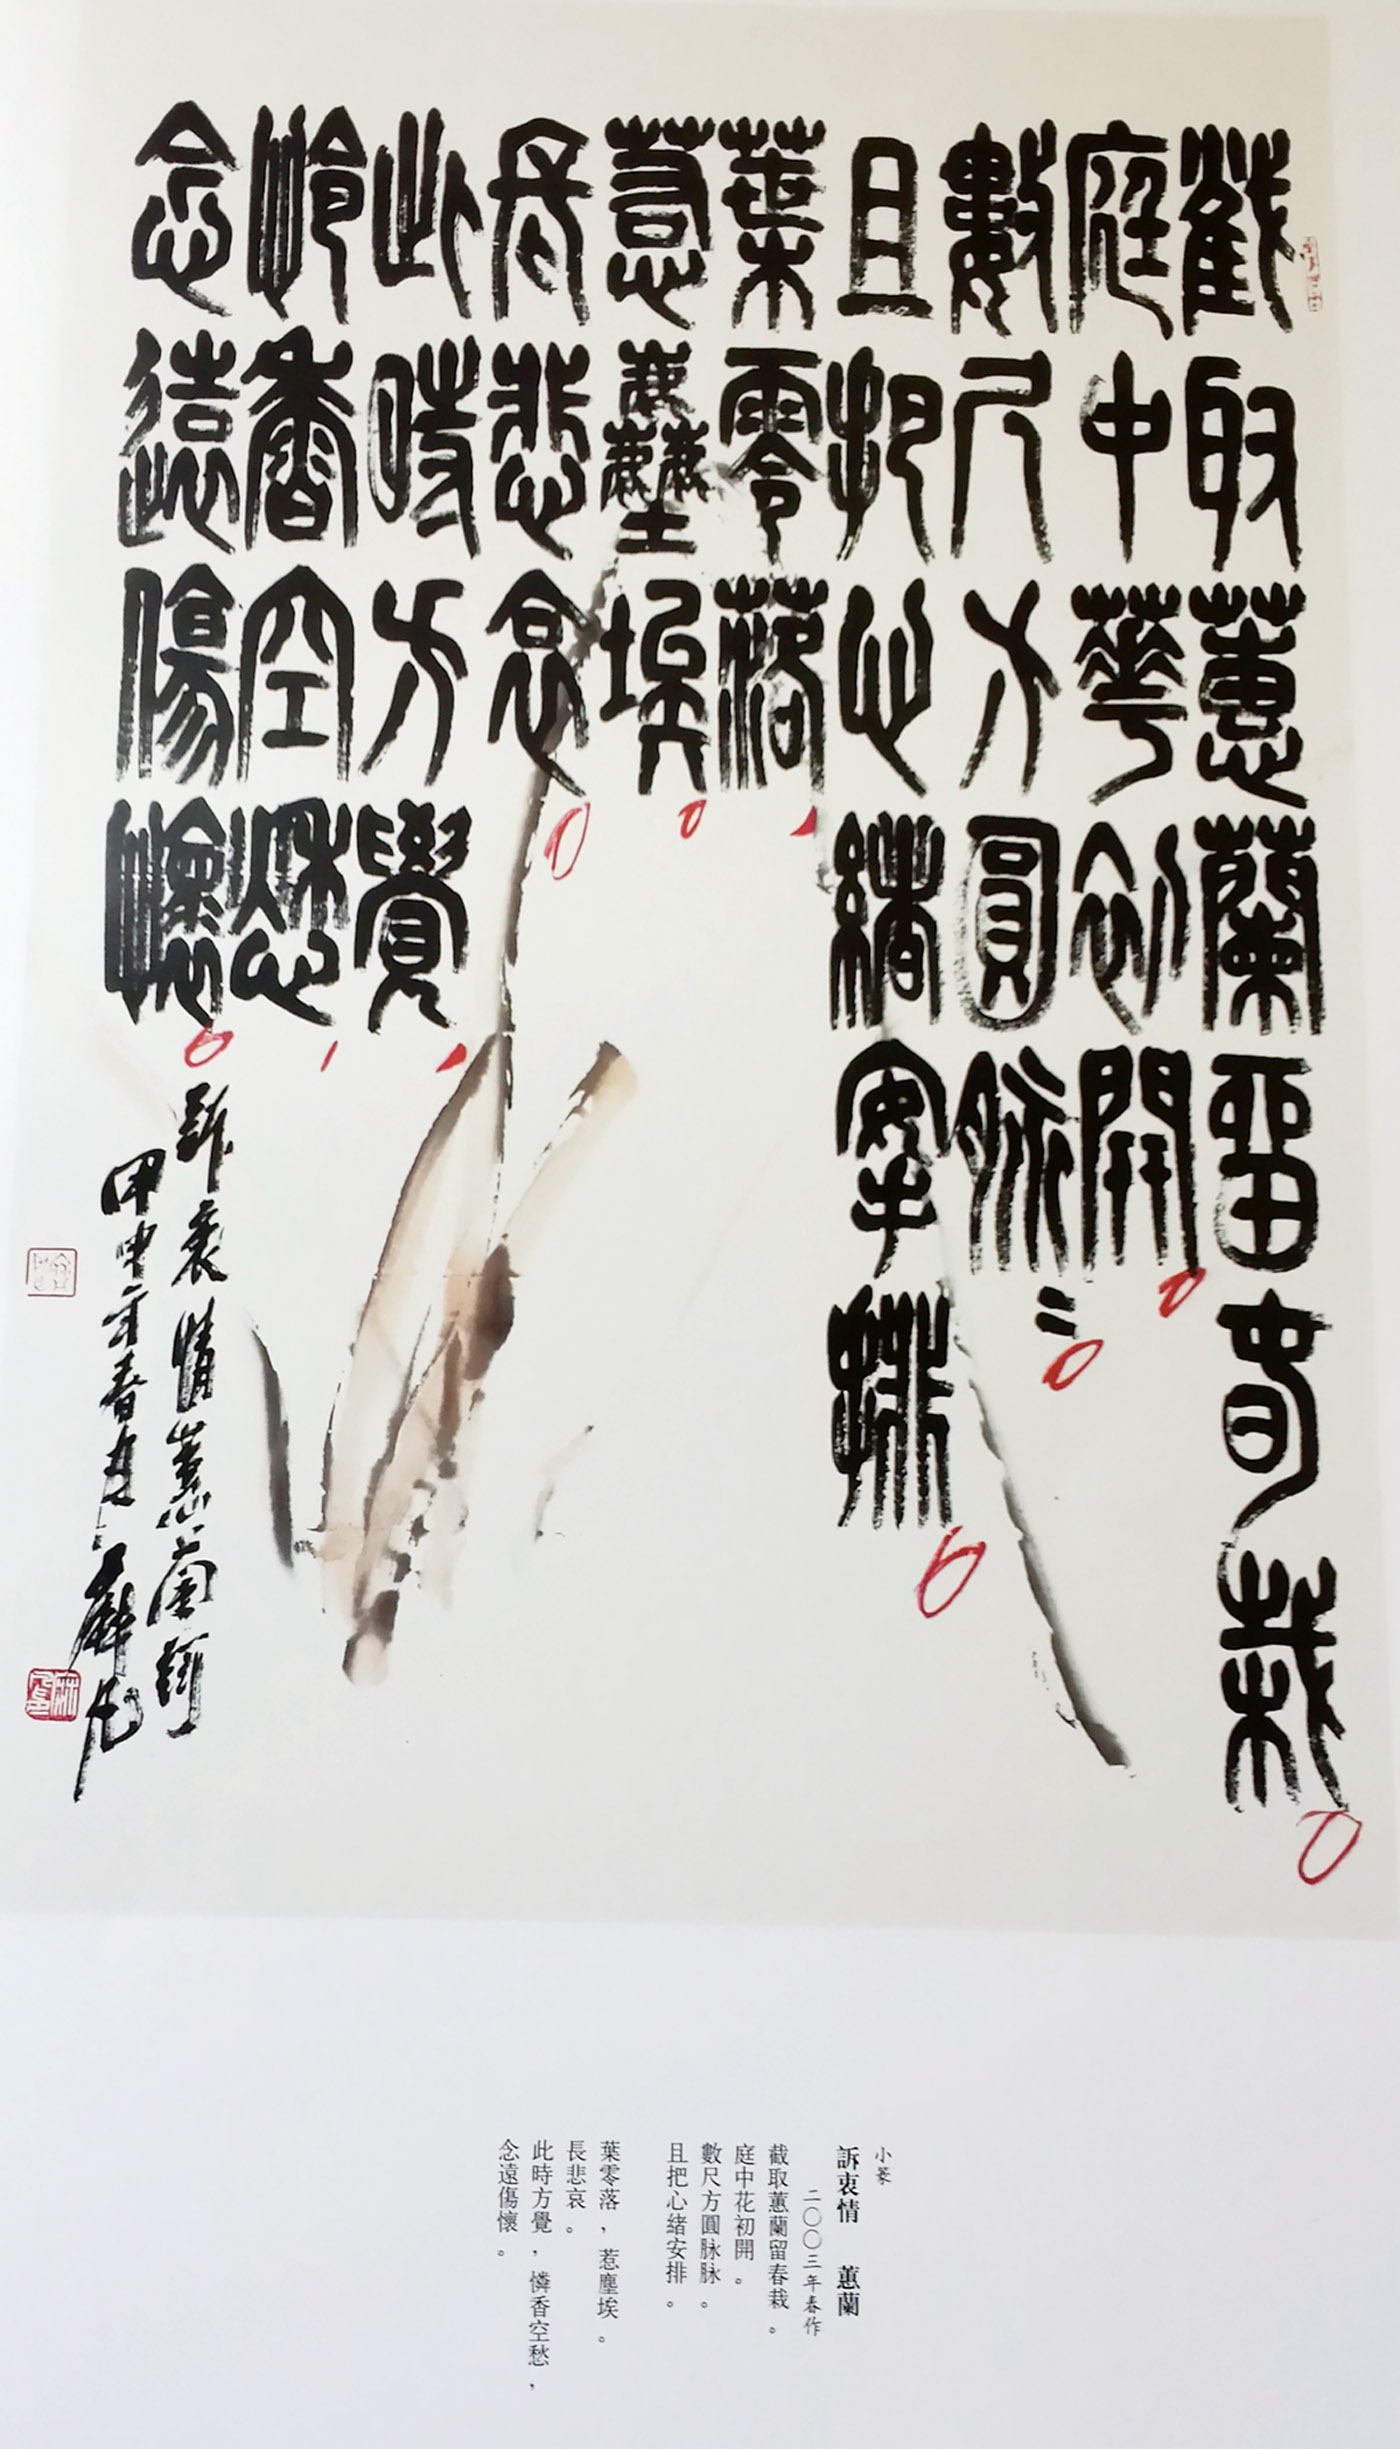 截取蕙蘭留春栽
庭中華初開
數尺方圓脉〻
且把心緒安排
葉零落
惹塵埃
長悲哀
此時方覺
憐香空愁
念遠傷懷
訴衷情蕙蘭詞
甲申年春月
小篆
訴衷情 蕙蘭
二〇〇三年春作
截取蕙蘭留春栽。
庭中花初開。
數尺方圓脉脉。
且把心緒安排。
葉零落，惹塵埃。
長悲哀。
此時方覺，憐香空愁，
念遠傷懷。